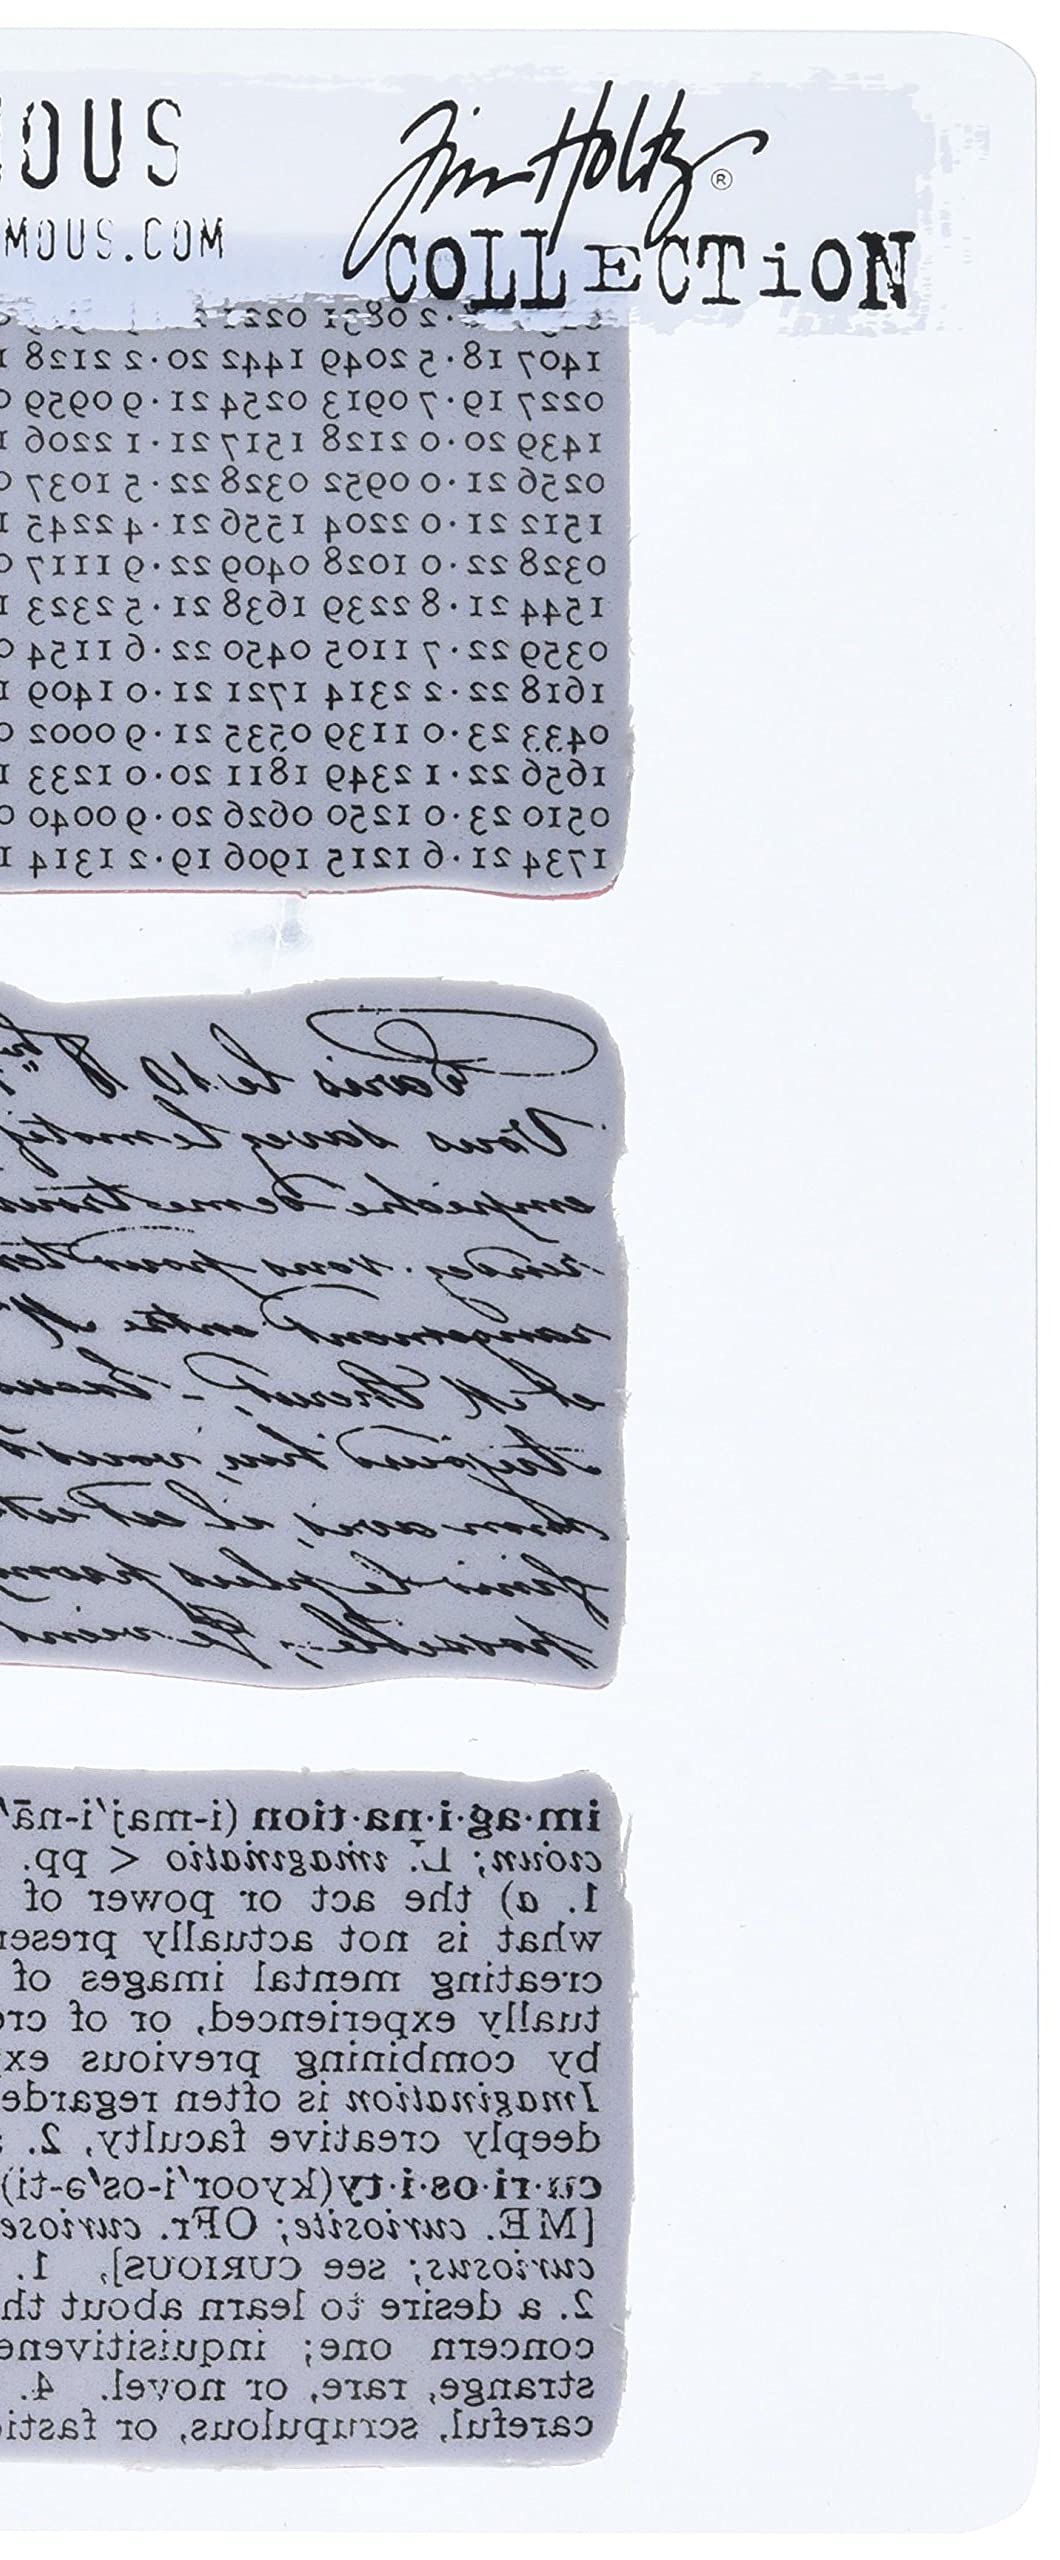 OUS
MOUS.COM
Tim Holtz®
COLLECTiON
1407 18·5 2049 1442 20·2 2128 1
0227 19·7 0913 0254 21·9 0959 0
1439 20·0 2128 1517 21·1 2206 1
0256 21·0 0952 0328 22·5 1037 0
1512 21·0 2204 1556 21·4 2245 1
0328 22·0 1028 0409 22·9 1117 0
1544 21·8 2239 1638 21·5 2323 1
0359 22·7 1105 0450 22·6 1154 0
1618 22·2 2314 1721 21·0 1409 1
0433 23·0 1139 0535 21·9 0002 0
1656 22·1 2349 1811 20·0 1233 1
0510 23·0 1250 0626 20·9 0040 0
1734 21·6 1215 1906 19·2 1314 1
Paris le 10
Vous savez le motif
empêche de me trouv
rendez-vous pour
rangement entre M
et M
toujours lui, vous
mon avis, il est
finir le plus promp
possible; Je viens
im·ag·i·na·tion (i-maj'i-nā'
cioun; L. imaginatio < pp.
1. a) the act or power of
what is not actually presen
creating mental images of
tually experienced, or of cre
by combining previous ex
Imagination is often regarde
deeply creative faculty, 2.
cu·ri·os·i·ty(kyoor'i-os'ə-ti)
[ME. curiosite; OFr. curiose
curiosus; see CURIOUS], 1.
2. a desire to learn about th
concern one; inquisitivene
strange, rare, or novel. 4.
careful, scrupulous, or fasti